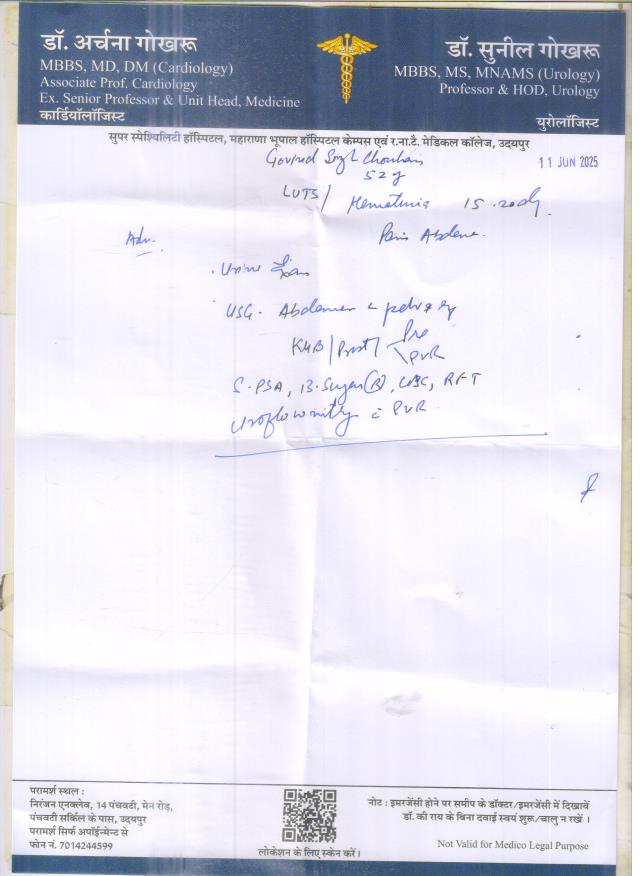 डॉ. अर्चना गोखरू
MBBS, MD, DM (Cardiology)
Associate Prof. Cardiology
Ex. Senior Professor & Unit Head, Medicine
कार्डियॉलॉजिस्ट
डॉ. सुनील गोखरू
MBBS, MS, MNAMS (Urology)
Professor & HOD, Urology
युरोलॉजिस्ट
सुपर स्पेश्यिलिटी हॉस्पिटल, महाराणा भूपाल हॉस्पिटल केम्पस एवं र.ना.टै. मेडिकल कॉलेज, उदयपुर
Govind Singh Chouhan
11 JUN 2025
52 y
LUTS / Hematuria 15-20 d
Pain Abdomen
Adv.
Urine Exam
USG. Abdomen & pelvis
KUB / Prost / Pre
PVR
S. PSA, B. Sugar (R), CBC, RFT
Uroflowmetry c PVR
परामर्श स्थल :
निरंजन एनक्लेव, 14 पंचवटी, मेन रोड़,
पंचवटी सर्किल के पास, उदयपुर
परामर्श सिर्फ अपॉईन्मेन्ट से
फोन नं. 7014244599
लोकेशन के लिए स्केन करें।
नोट : इमरजेंसी होने पर समीप के डॉक्टर/इमरजेंसी में दिखावें
डॉ. की राय के बिना दवाई स्वयं शुरू/चालु न रखें ।
Not Valid for Medico Legal Purpose